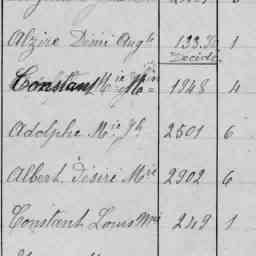 Alzire Dimi Augte 133.36 1
Décidé
Constant Mie 1848 4
Adolphe Mie Jh 2501 6
Albert Désiré Mie 2902 6
Constant Louis Mie 249 1